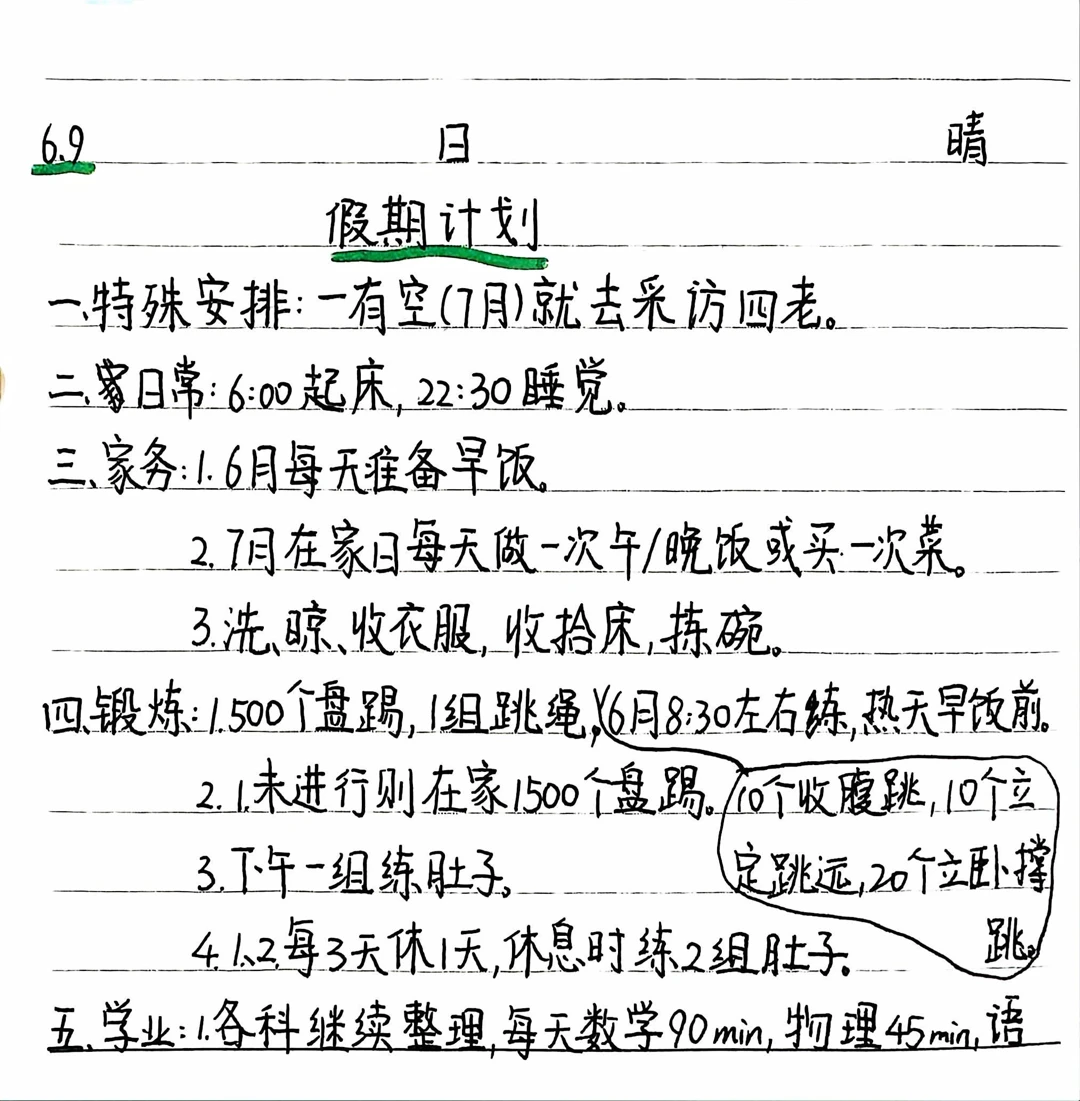 6.9 日 晴
假期计划
一、特殊安排:一有空(7月)就去采访四老。
二、家日常:6:00起床,22:30睡觉。
三、家务:1.6月每天准备早饭。
2.7月在家日每天做一次午/晚饭或买一次菜。
3.洗、晾、收衣服,收拾床,拣碗。
四、锻炼:1.500个盘踢,1组跳绳,6月8:30左右练,热天早饭前。
2.1.未进行则在家1500个盘踢。
10个收腹跳,10个立
3.下午一组练肚子。
定跳远,20个立卧撑
4.1、2.每3天休1天,休息时练2组肚子。
跳。
五、学业:1.各科继续整理,每天数学90min,物理45min,语